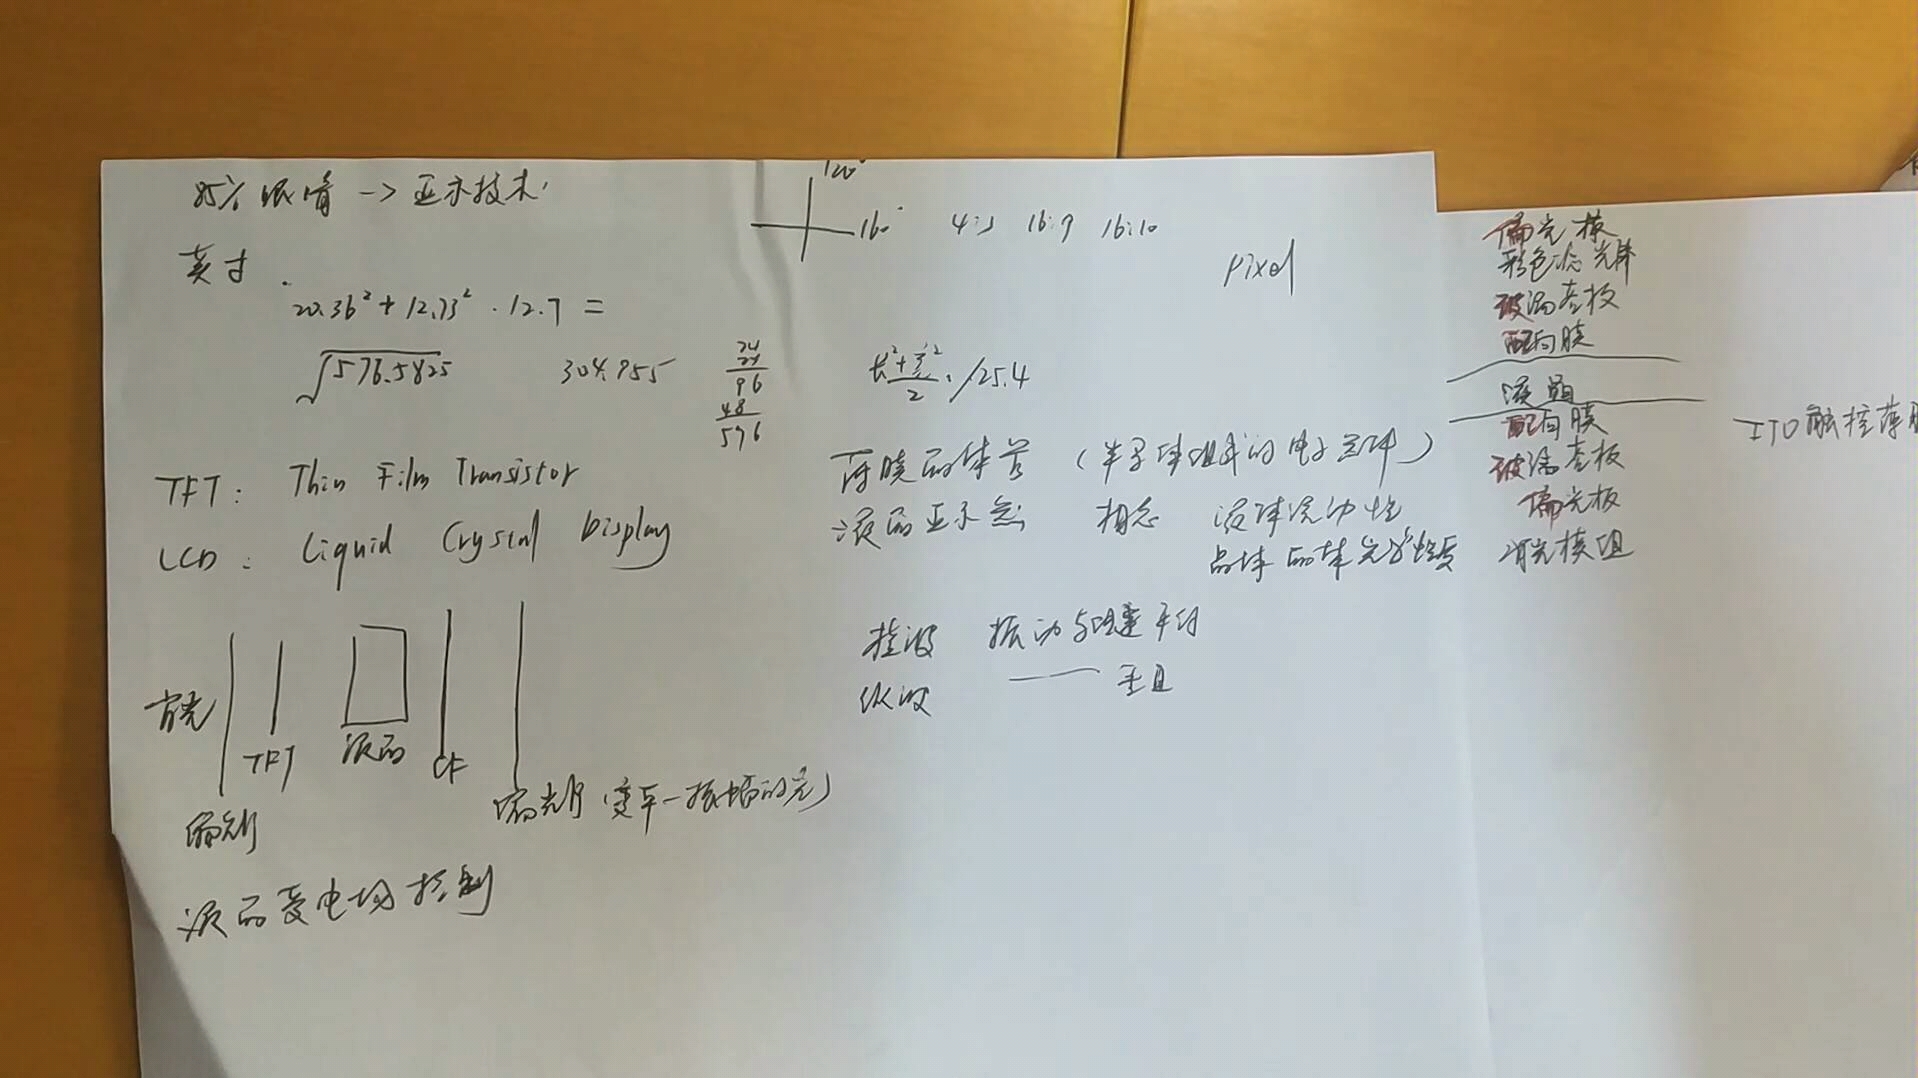 85% 眼睛 -> 显示技术
120°
160° 4:3 16:9 16:10
英寸
Pixel
20.36² + 12.73² · 12.7 =
√576.5825 304.955
24
24
96
48
576
长²+宽²
2 /25.4
TFT: Thin Film Transistor
薄膜晶体管 (半导体组成的电子器件)
LCD: Liquid Crystal Display
液晶显示器 相态 液体流动性
晶体 晶体光学性质
横波 振动与速度平行
纵波 —— 垂直
背光
TFT
液晶
CF
偏光片
偏光片 (变单一振幅的光)
液晶受电场控制
偏光板
彩色滤光片
玻璃基板
配向膜
液晶
配向膜
玻璃基板
偏光板
背光模组
ITO触控薄膜